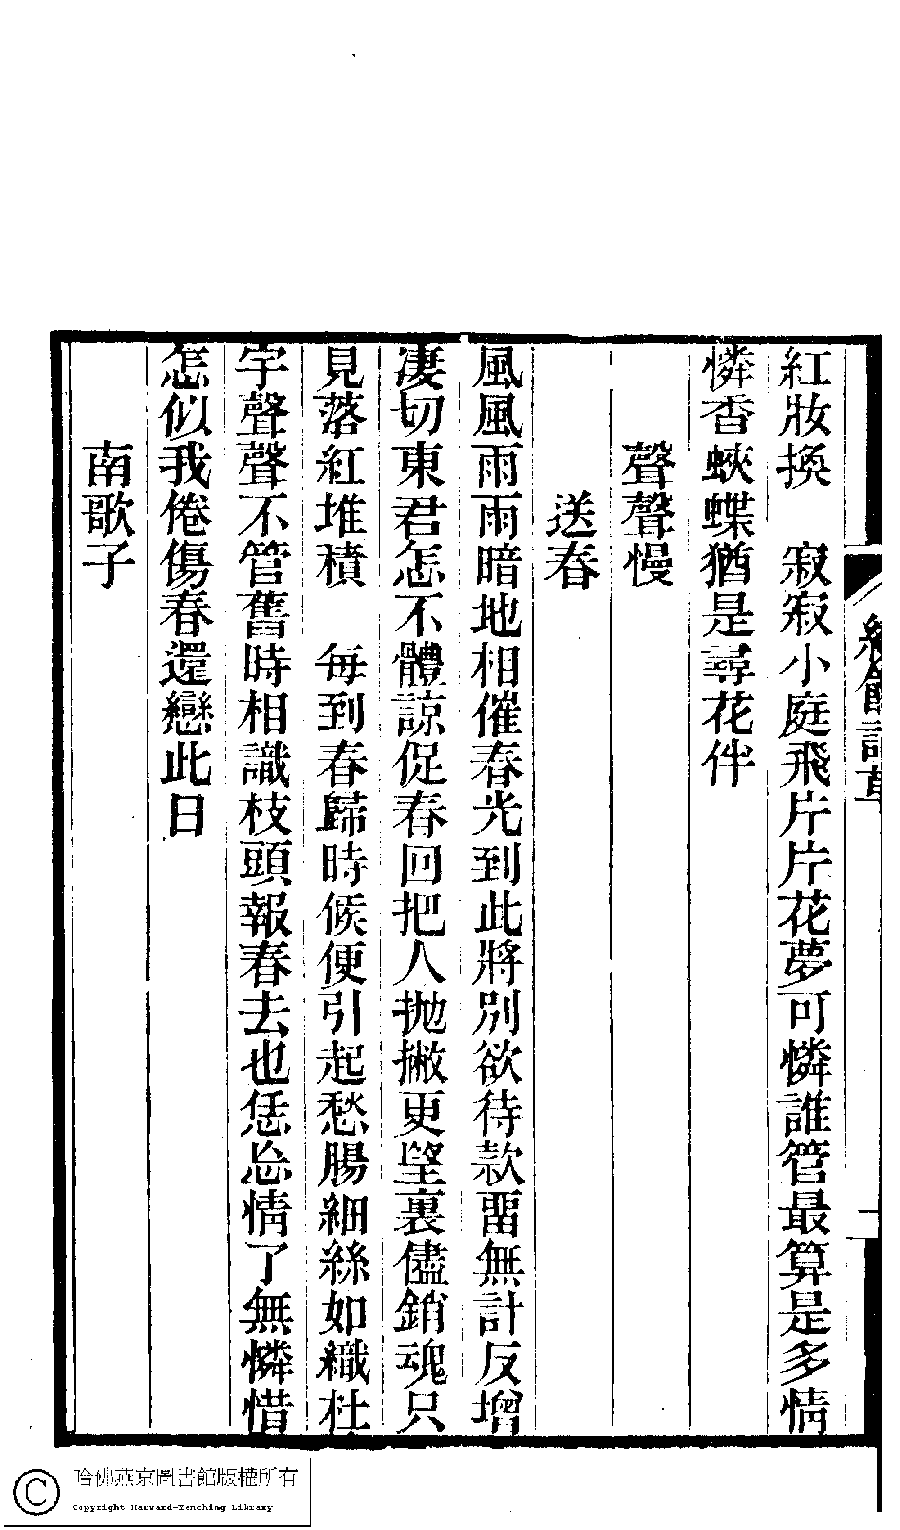 紅妝換　寂寂小庭飛片片花夢可憐誰管最算是多情
憐香蛺蝶猶是尋花伴
聲聲慢
送春
風風雨雨暗地相催春光到此將別欲待款畱無計反增
凄切東君怎不體諒促春回把人拋撇更堅裏儘銷魂只
見落紅堆積　每到春歸時候便引起愁腸細絲如織杜
宇聲聲不管舊時相識枝頭報春去也恁忩情了無憐惜
怎似我倦傷春還戀此日
南歌子
一
哈佛燕京圖書館版權所有
Copyright Harvard-Yenching Library